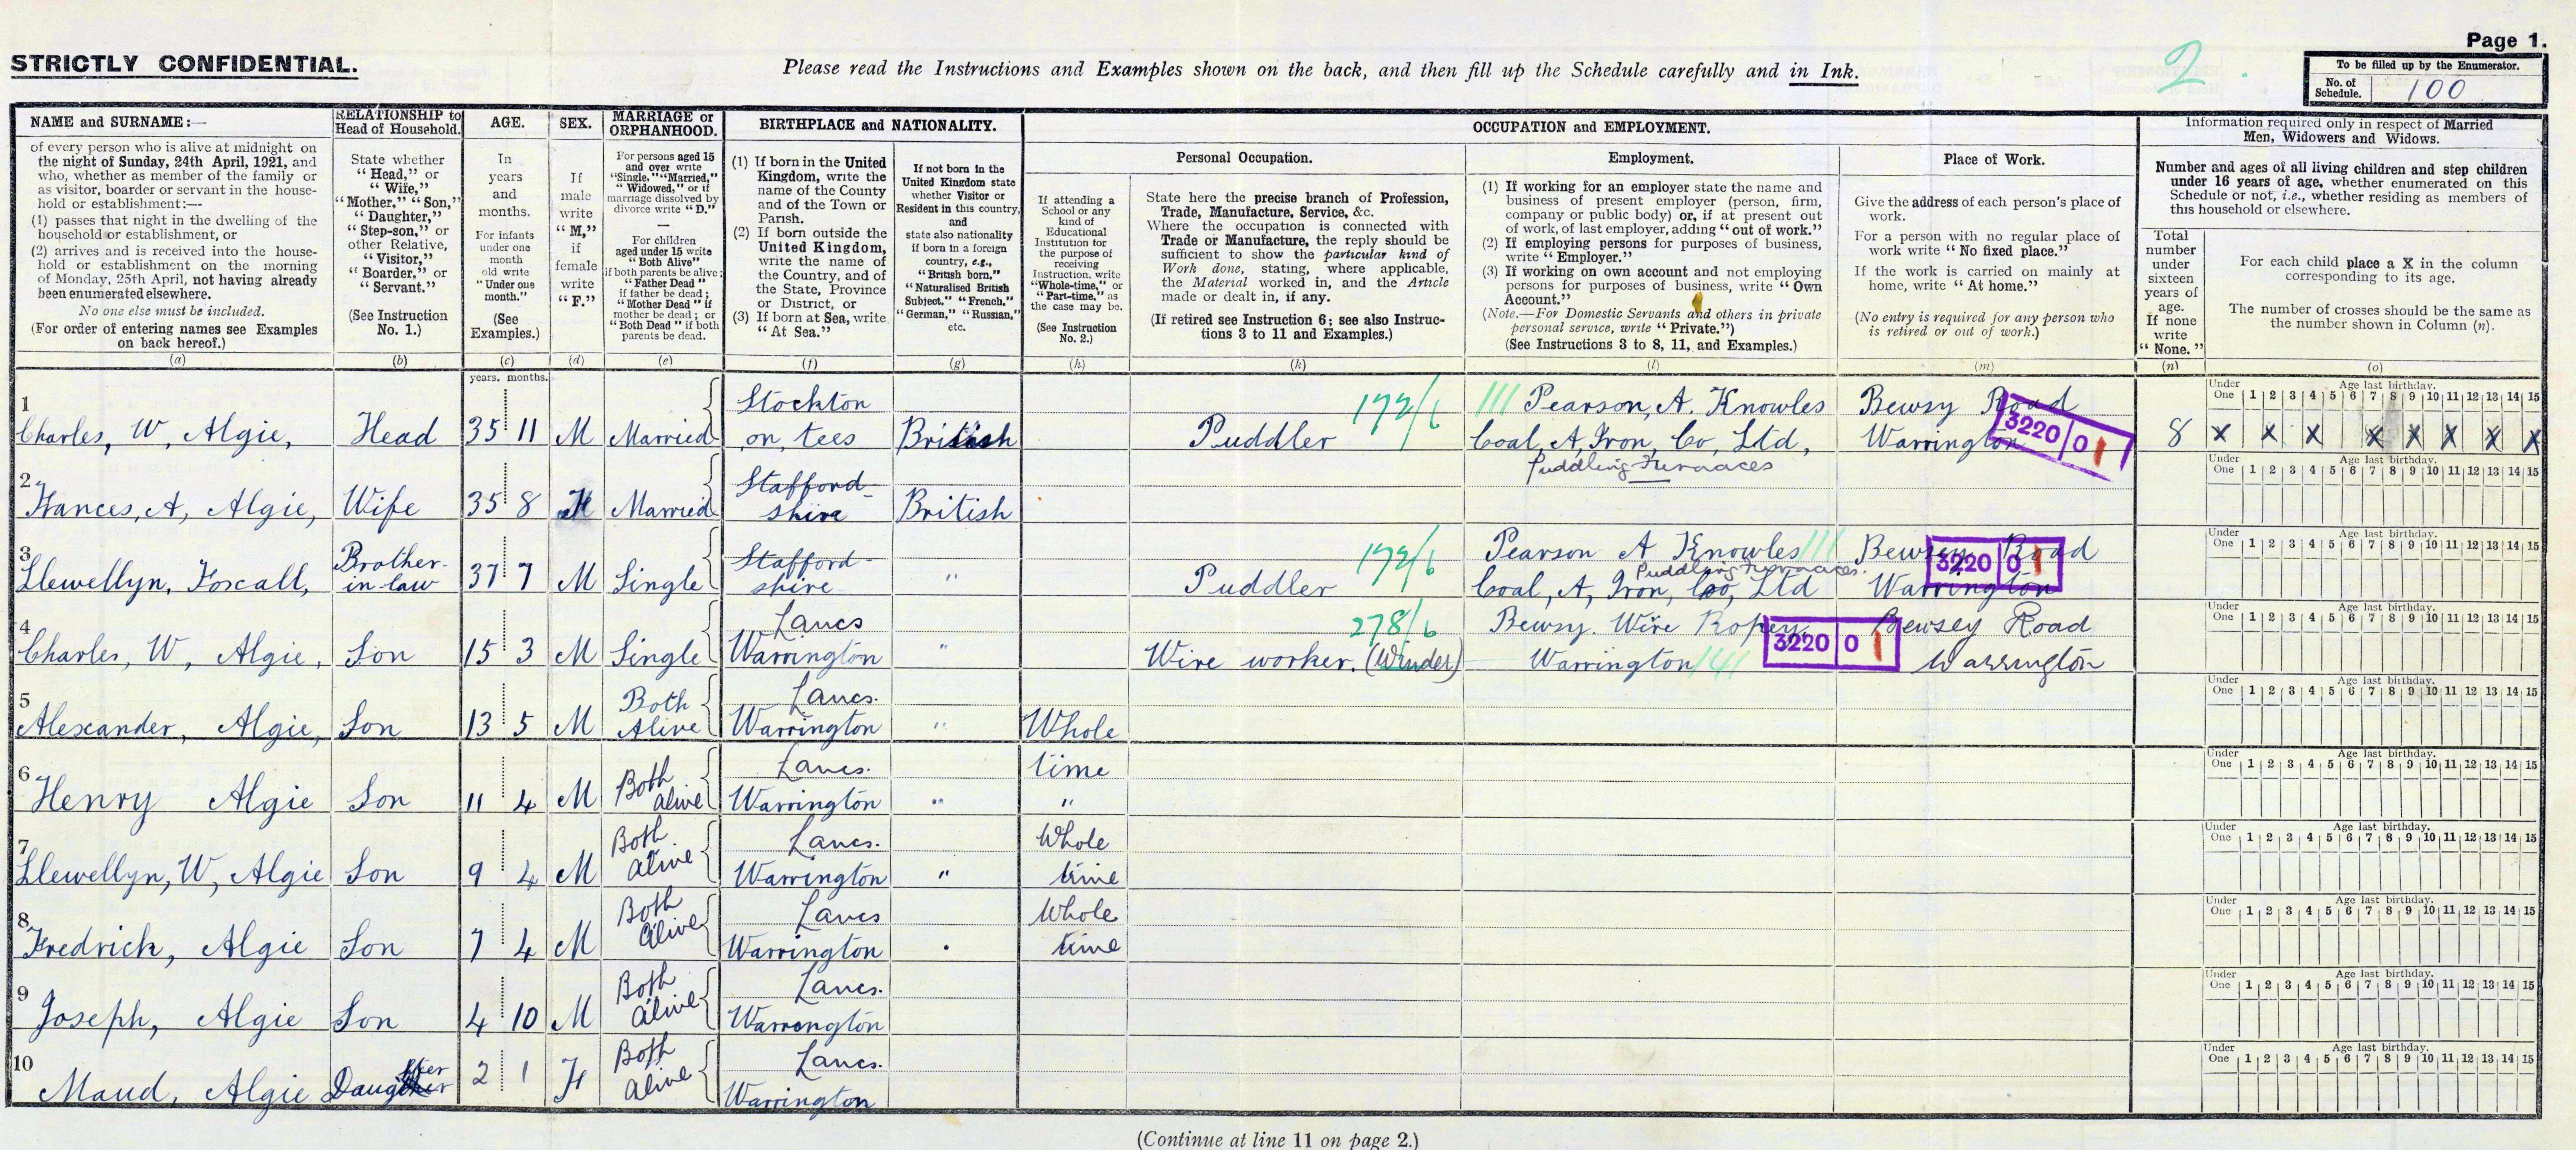 Page 1.
STRICTLY CONFIDENTIAL.
Please read the Instructions and Examples shown on the back, and then fill up the Schedule carefully and in Ink.
2
To be filled up by the Enumerator.
No. of Schedule. 100
NAME and SURNAME:—
of every person who is alive at midnight on
the night of Sunday, 24th April, 1921, and
who, whether as member of the family or
as visitor, boarder or servant in the house-
hold or establishment:—
(1) passes that night in the dwelling of the
household or establishment, or
(2) arrives and is received into the house-
hold or establishment on the morning
of Monday, 25th April, not having already
been enumerated elsewhere.
No one else must be included.
(For order of entering names see Examples
on back hereof.)
(a)
RELATIONSHIP to
Head of Household.
State whether
"Head," or
"Wife,"
"Mother," "Son,"
"Daughter,"
"Step-son," or
other Relative,
"Visitor,"
"Boarder," or
"Servant."
(See Instruction
No. 1.)
(b)
AGE.
In
years
and
months.
For infants
under one
month
old write
"Under one
month."
(See
Examples.)
(c)
SEX.
If
male
write
"M,"
if
female
write
"F."
(d)
MARRIAGE or
ORPHANHOOD.
For persons aged 15
and over write
"Single," "Married,"
"Widowed," or if
marriage dissolved by
divorce write "D."
For children
aged under 15 write
"Both Alive"
if both parents be alive;
"Father Dead"
if father be dead;
"Mother Dead" if
mother be dead; or
"Both Dead" if both
parents be dead.
(e)
BIRTHPLACE and NATIONALITY.
(1) If born in the United
Kingdom, write the
name of the County
and of the Town or
Parish.
(2) If born outside the
United Kingdom,
write the name of
the Country, and of
the State, Province
or District, or
(3) If born at Sea, write
"At Sea."
(f)
If not born in the
United Kingdom state
whether Visitor or
Resident in this country,
and
state also nationality
if born in a foreign
country, e.g.,
"British born,"
"Naturalised British
Subject," "French,"
"German," "Russian,"
etc.
(g)
OCCUPATION and EMPLOYMENT.
If attending a
School or any
kind of
Educational
Institution for
the purpose of
receiving
Instruction, write
"Whole-time," or
"Part-time," as
the case may be.
(See Instruction
No. 2.)
(h)
Personal Occupation.
State here the precise branch of Profession,
Trade, Manufacture, Service, &c.
Where the occupation is connected with
Trade or Manufacture, the reply should be
sufficient to show the particular kind of
Work done, stating, where applicable,
the Material worked in, and the Article
made or dealt in, if any.
(If retired see Instruction 6; see also Instruc-
tions 3 to 11 and Examples.)
(k)
Employment.
(1) If working for an employer state the name and
business of present employer (person, firm,
company or public body) or, if at present out
of work, of last employer, adding "out of work."
(2) If employing persons for purposes of business,
write "Employer."
(3) If working on own account and not employing
persons for purposes of business, write "Own
Account."
(Note.—For Domestic Servants and others in private
personal service, write "Private.")
(See Instructions 3 to 8, 11, and Examples.)
(l)
Place of Work.
Give the address of each person's place of
work.
For a person with no regular place of
work write "No fixed place."
If the work is carried on mainly at
home, write "At home."
(No entry is required for any person who
is retired or out of work.)
(m)
Information required only in respect of Married
Men, Widowers and Widows.
Number and ages of all living children and step children
under 16 years of age, whether enumerated on this
Schedule or not, i.e., whether residing as members of
this household or elsewhere.
Total
number
under
sixteen
years of
age.
If none
write
"None."
(n)
For each child place a X in the column
corresponding to its age.
The number of crosses should be the same as
the number shown in Column (n).
(o)
years. months.
1 Charles, W, Algie, Head 35 11 M Married Stockton on tees British Puddler 172/6 Pearson, A. Knowles Coal, A, Iron, Co, Ltd, Puddling Furnaces Bewsy Road Warrington 3220 0 1 8
Under One 1 2 3 4 5 6 7 8 9 10 11 12 13 14 15 Age last birthday.
X X X X X X X X
2 Frances, A, Algie, Wife 35 8 F Married Stafford-shire British
Under One 1 2 3 4 5 6 7 8 9 10 11 12 13 14 15 Age last birthday.
3 Llewellyn, Foxall, Brother-in-law 37 7 M Single Stafford-shire " Puddler 172/6 Pearson A Knowles Puddling Furnaces Coal, A, Iron, Co, Ltd Bewsey Road Warrington 3220 0 1
Under One 1 2 3 4 5 6 7 8 9 10 11 12 13 14 15 Age last birthday.
4 Charles, W, Algie, Son 15 3 M Single Lancs Warrington " Wire worker. (Winder) 278/6 Bewsy. Wire Ropery Warrington 141 Bewsey Road Warrington 3220 0 1
Under One 1 2 3 4 5 6 7 8 9 10 11 12 13 14 15 Age last birthday.
5 Alexander, Algie, Son 13 5 M Both Alive Lancs. Warrington " Whole
Under One 1 2 3 4 5 6 7 8 9 10 11 12 13 14 15 Age last birthday.
6 Henry Algie Son 11 4 M Both alive Lancs. Warrington " time "
Under One 1 2 3 4 5 6 7 8 9 10 11 12 13 14 15 Age last birthday.
7 Llewellyn, W, Algie Son 9 4 M Both alive Lancs. Warrington " Whole time
Under One 1 2 3 4 5 6 7 8 9 10 11 12 13 14 15 Age last birthday.
8 Fredrick, Algie Son 7 4 M Both alive Lancs Warrington Whole time
Under One 1 2 3 4 5 6 7 8 9 10 11 12 13 14 15 Age last birthday.
9 Joseph, Algie Son 4 10 M Both alive Lancs. Warrington
Under One 1 2 3 4 5 6 7 8 9 10 11 12 13 14 15 Age last birthday.
10 Maud, Algie Daughter 2 1 F Both alive Lancs. Warrington
Under One 1 2 3 4 5 6 7 8 9 10 11 12 13 14 15 Age last birthday.
(Continue at line 11 on page 2.)